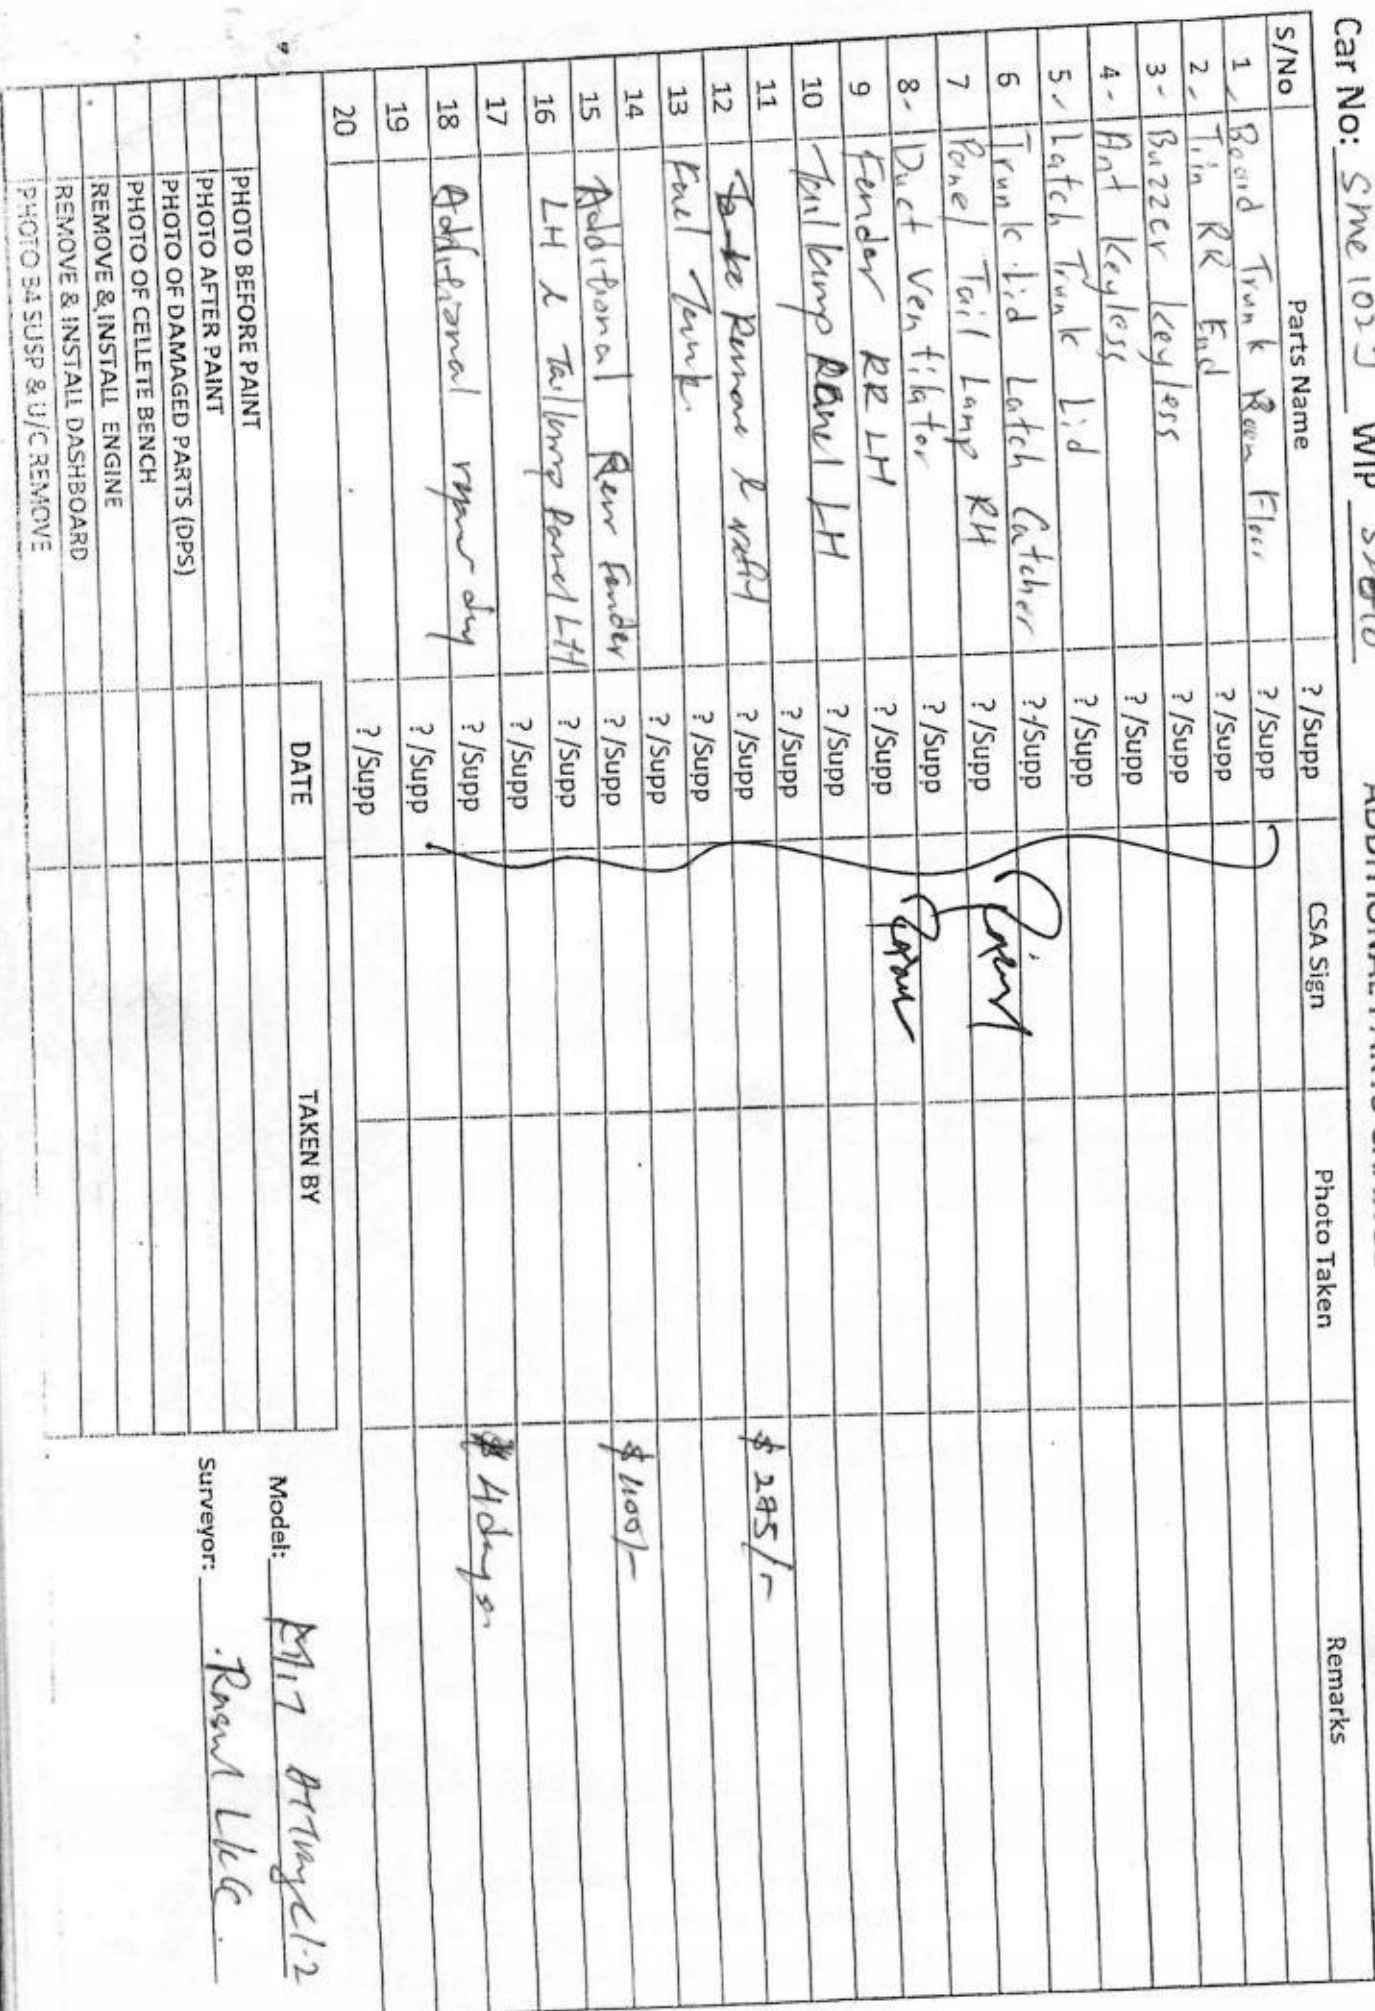 Car No: SME 102 WIP
S/No Parts Name ? /Supp CSA Sign Photo Taken Remarks
1 Board Trunk Room Floor ? /Supp
2 Trim RR End ? /Supp
3 Buzzer Keyless ? /Supp
4 Ant Keyless ? /Supp
5 Latch Trunk Lid ? /Supp
6 Trunk Lid Latch Catcher ? /Supp
7 Panel Tail Lamp RH ? /Supp
8 Duct Ventilator ? /Supp
9 Fender RR LH ? /Supp
10 Tail lamp Panel LH ? /Supp
11 ? /Supp
12 Remove & refit ? /Supp $ 275/-
13 Fuel Tank ? /Supp
14 ? /Supp
15 Additional Rear Fender ? /Supp $ 400/-
16 LH & Tail lamp Panel LH ? /Supp
17 ? /Supp
18 Additional repair day ? /Supp 4 days
19 ? /Supp
20 ? /Supp
DATE TAKEN BY
PHOTO BEFORE PAINT
PHOTO AFTER PAINT
PHOTO OF DAMAGED PARTS (DPS)
PHOTO OF CELLETE BENCH
REMOVE & INSTALL ENGINE
REMOVE & INSTALL DASHBOARD
PHOTO B4 SUSP & U/C REMOVE
Model: M/T Attrage 1.2
Surveyor: LKK